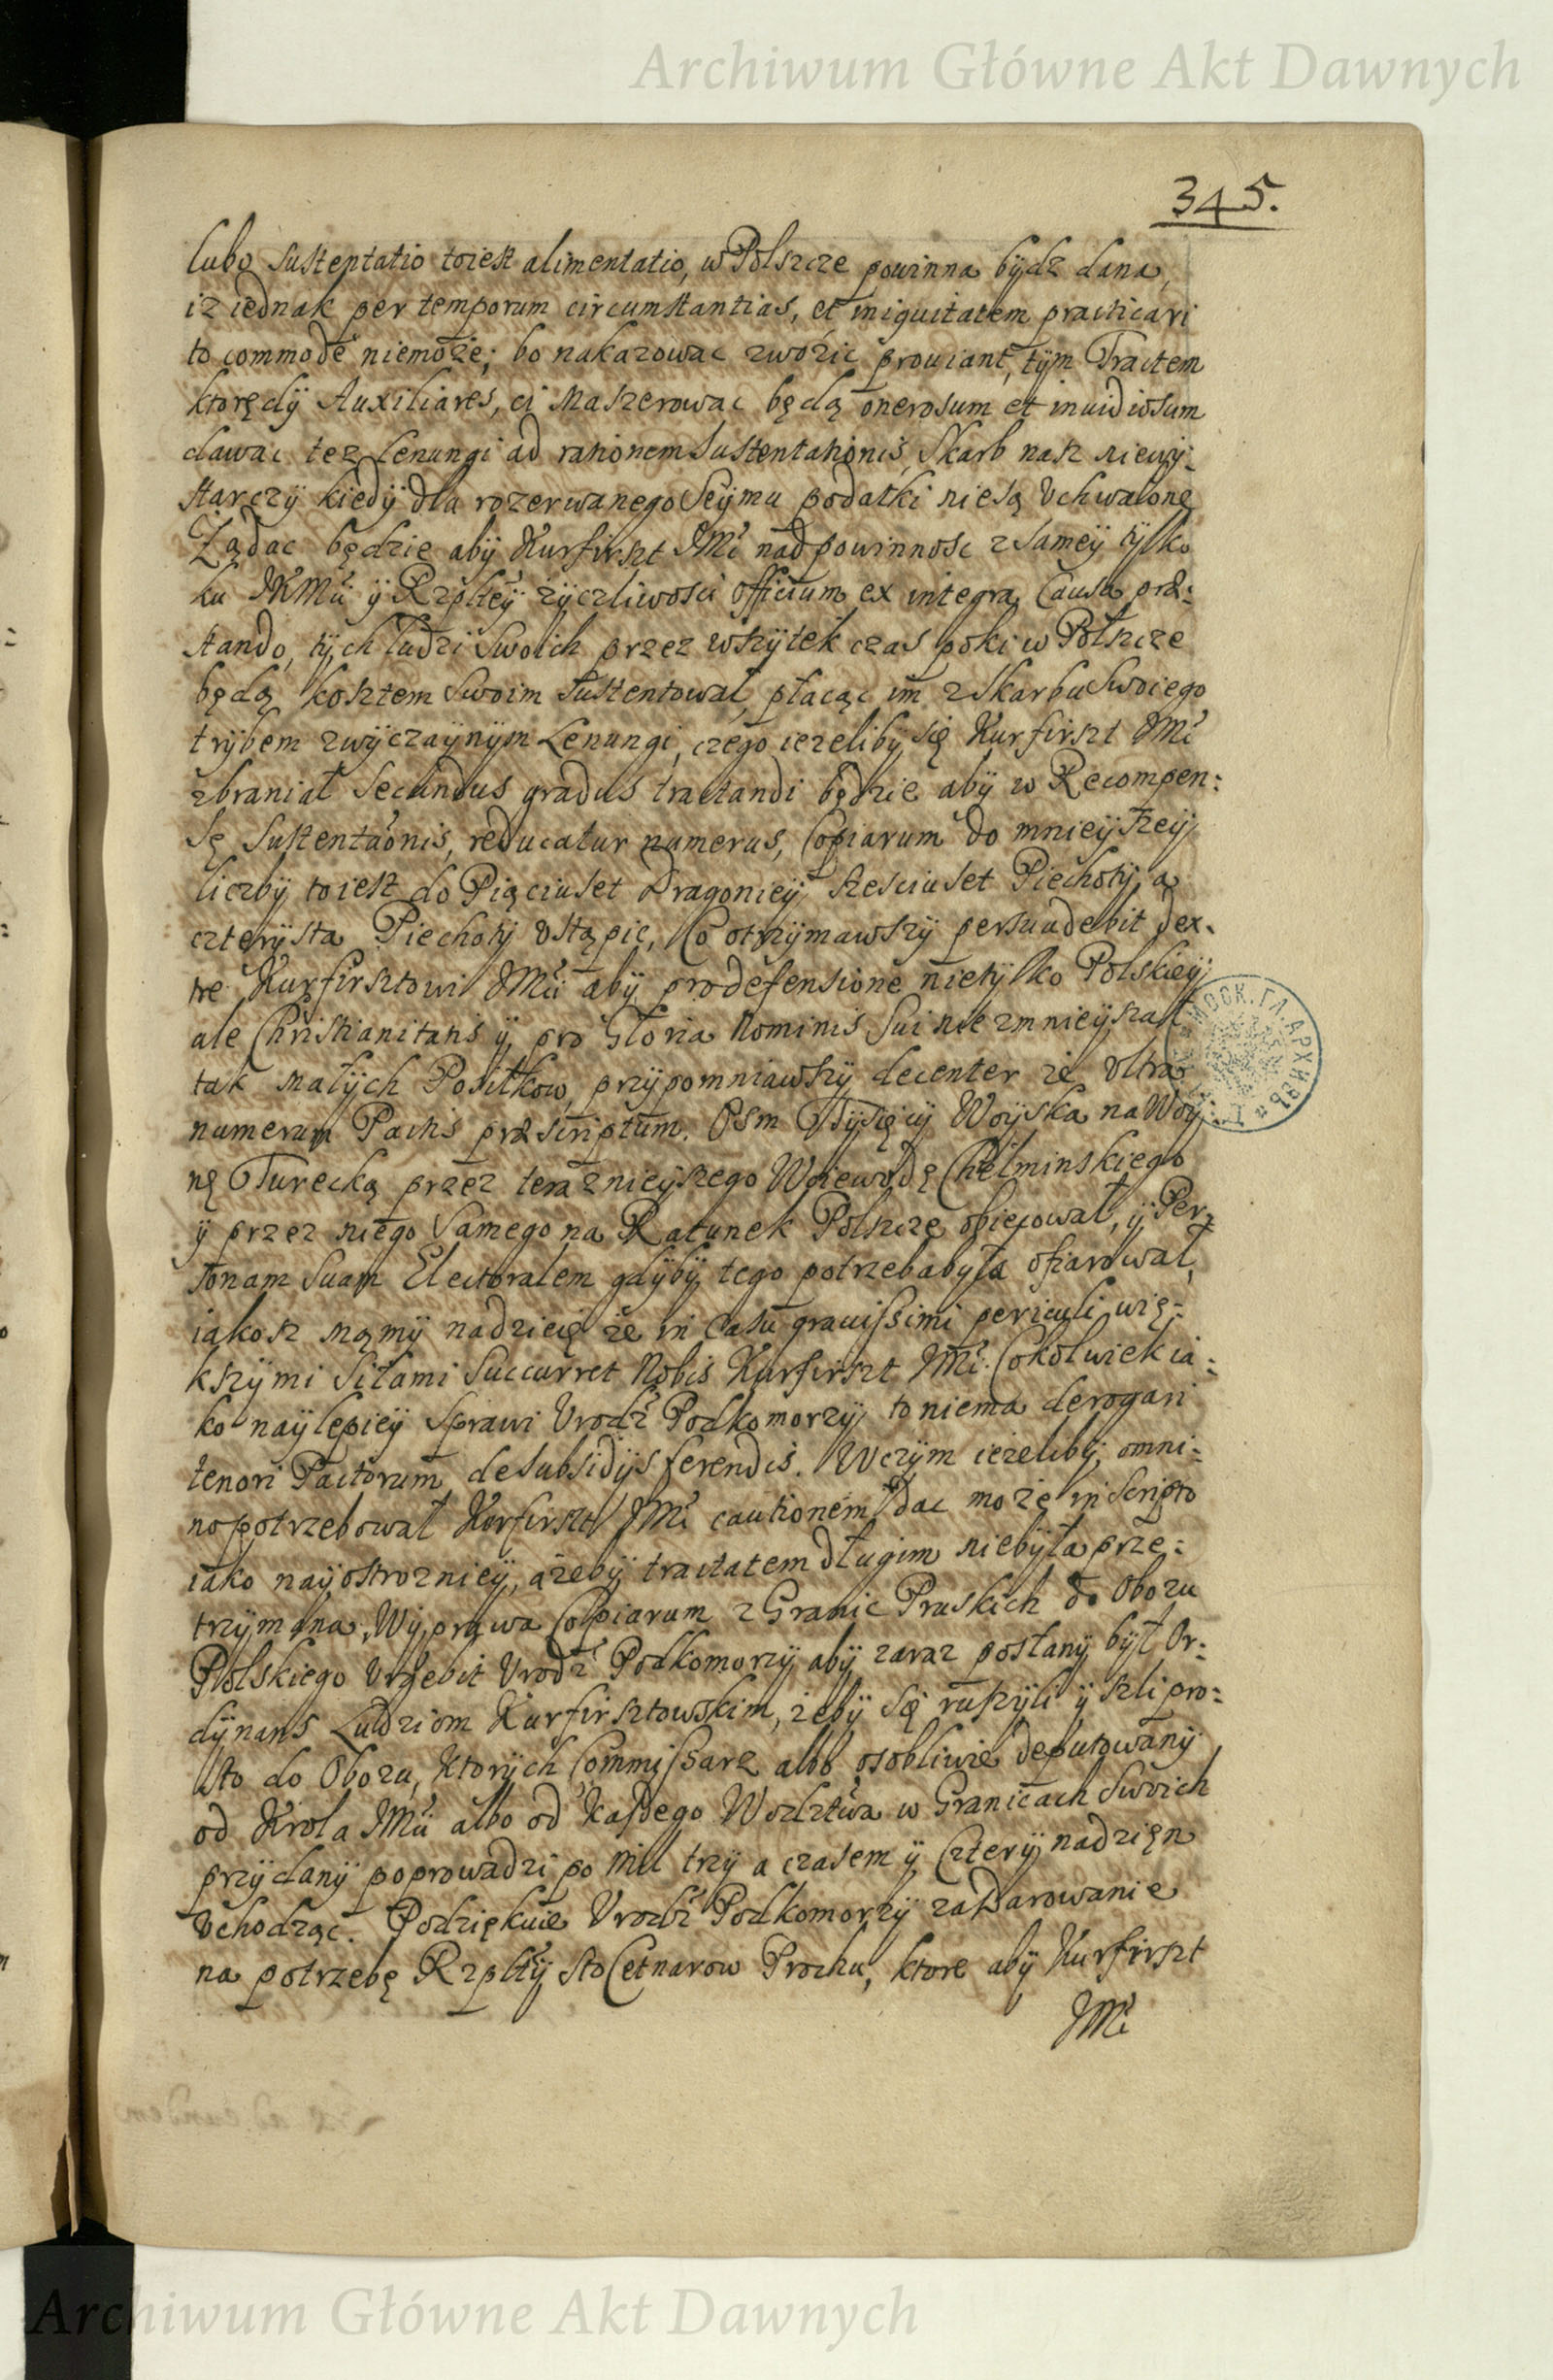 Archiwum Główne Akt Dawnych
345.
lubo sustentatio toiest alimentatio, w Polszcze powinna bydz dana,
iz iednak per temporum circumstantias, et iniquitatem practicari
to commode niemoże; bo nakazowac zwozic prowiant, tym Tractem
ktorędy Auxiliares, ci maszerowac będą onerosum et inuidiosum
dawac tez Lenungi ad rationem sustentationis, Skarb nasz niewy-
starczy kiedy dla rozerwanego Seymu podatki niesą Vchwalone
Ządac będzie aby Kurfirszt JMć nad powinnosc z samey tylko
ku JKMci y Rzpltey zyczliwosci officium ex integra Causa præ-
stando, tych ludzi swoich przez wszytek czas poki w Polszcze
będą kosztem swoim sustentował, płacąc im z Skarbu Swoiego
trybem zwyczaynym Lenungi, czego iezeliby się Kurfirszt JMć
zbraniał Secundus gradus tractandi będzie aby w Recompen:
sę sustentaonis, reducatur numerus, Copiarum do mnieyszey
liczby toiest do Piąciuset Dragoniey, szesciuset Piechoty, a
czterysta Piechoty Vstąpic, Co otrzymawszy persuadebit dex-
tre Kurfirsztowi JMci aby pro defensione nietylko Polskiey
ale Christianitatis y pro Gloria Nominis Sui nie zmnieyszał
tak małych Posiłkow, przypomniawszy decenter ze Vltra
numerum Pactis præscriptum. Osm Tysięcy Woyska na Woy-
nę Turecką przez teraznieyszego Woiewodę Chełminskiego
y przez niego Samego na Ratunek Polszcze obiecował, y Per-
sonam Suam Electoralem gdyby tego potrzebabyła ofiarował,
iakosz mamy nadzieię ze in Casu grauissimi periculi wię-
kszymi Siłami Succurret Nobis Kurfirszt JMć. Cokolwiek ia-
ko naylepiey sprawi Vrodź Podkomorzy, to niema derogari
tenori Pactorum de subsidijs ferendis. W czym iezeliby omni-
no potrzebował Kurfirszt JMć cautionem dac moze in scripto
iako nayostrozniey, azeby tractatem długim niebyła prze-
trzymana Wyprawa Copiarum z Granic Pruskich do Obozu
Polskiego Vrgebit Vrodź Podkomorzy, aby zaraz posłany był Or-
dynans Ludziom Kurfirsztowskim, zeby się ruszyli y szli pro-
sto do Obozu, ktorych Commissarz albo osobliwie deputowany
od Krola JMci albo od kazdego Wodztwa w Granicach Swoich
przydany poprowadzi po Mil trzy a czasem y Cztery nadzień
Vchodząc. Podziękuie Vrodź Podkomorzy za Darowanie
na potrzebę Rzplty sto Cetnarow Prochu, ktore aby Kurfirszt
JMć
МОСК. ГЛ. АРХИВЪ
Archiwum Główne Akt Dawnych